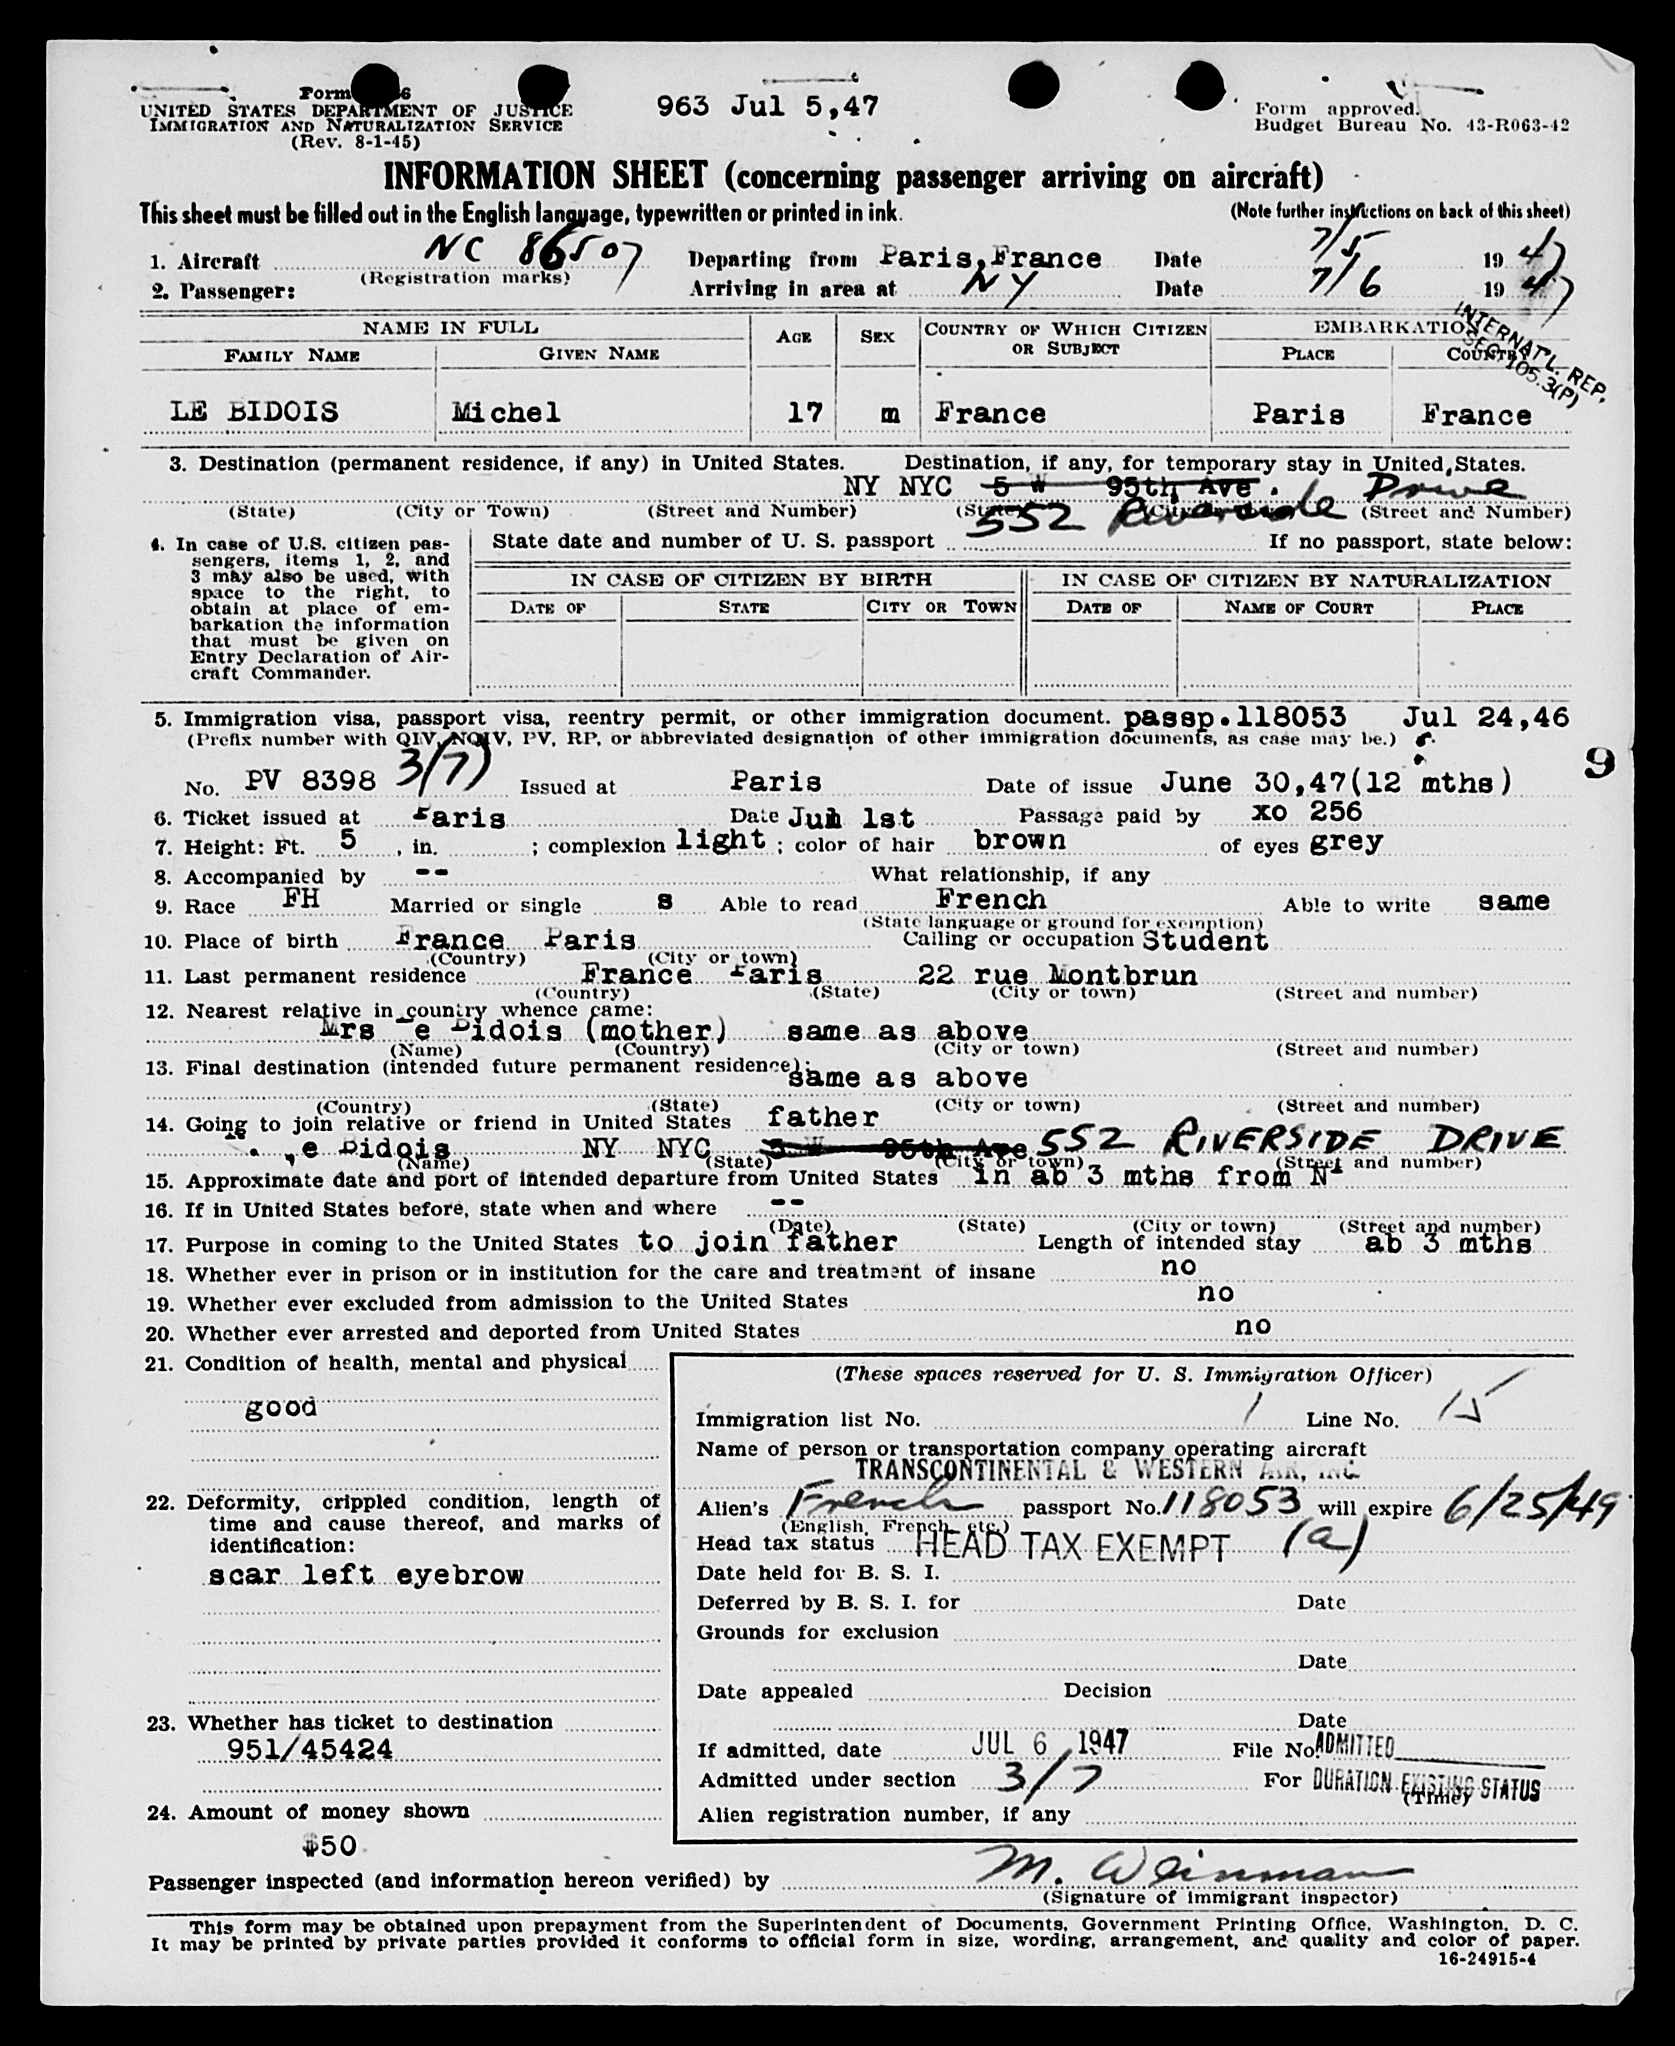 Form
UNITED STATES DEPARTMENT OF JUSTICE
IMMIGRATION AND NATURALIZATION SERVICE
(Rev. 8-1-45)
963 Jul 5,47
Form approved.
Budget Bureau No. 43-R063-42
INFORMATION SHEET (concerning passenger arriving on aircraft)
This sheet must be filled out in the English language, typewritten or printed in ink.
(Note further instructions on back of this sheet)
1. Aircraft NC 86507 Departing from Paris,France Date 7/5 1947
(Registration marks)
2. Passenger: Arriving in area at NY Date 7/6 1947
INTERNAT'L. REP.
SEC. 105.3(P)
NAME IN FULL AGE SEX COUNTRY OF WHICH CITIZEN OR SUBJECT EMBARKATION
FAMILY NAME GIVEN NAME PLACE COUNTRY
LE BIDOIS Michel 17 m France Paris France
3. Destination (permanent residence, if any) in United States. Destination, if any, for temporary stay in United States.
NY NYC 5 W 95th Ave. Drive
552 Riverside
(State) (City or Town) (Street and Number) (State) (City or Town) (Street and Number)
4. In case of U.S. citizen passengers, items 1, 2, and
3 may also be used, with
space to the right, to
obtain at place of em-
barkation the information
that must be given on
Entry Declaration of Air-
craft Commander.
State date and number of U. S. passport If no passport, state below:
IN CASE OF CITIZEN BY BIRTH IN CASE OF CITIZEN BY NATURALIZATION
DATE OF STATE CITY OR TOWN DATE OF NAME OF COURT PLACE
5. Immigration visa, passport visa, reentry permit, or other immigration document. passp.118053 Jul 24,46
(Prefix number with QIV, NQIV, PV, RP, or abbreviated designation of other immigration documents, as case may be.)
9
No. PV 8398 3(7) Issued at Paris Date of issue June 30,47(12 mths)
6. Ticket issued at Paris Date Jun 1st Passage paid by xo 256
7. Height: Ft. 5, in. ; complexion light ; color of hair brown of eyes grey
8. Accompanied by -- What relationship, if any
9. Race FH Married or single s Able to read French Able to write same
(State language or ground for exemption)
10. Place of birth France Paris Calling or occupation Student
(Country) (City or town)
11. Last permanent residence France Paris 22 rue Montbrun
(Country) (State) (City or town) (Street and number)
12. Nearest relative in country whence came:
Mrs Le Bidois (mother) same as above
(Name) (Country) (City or town) (Street and number)
13. Final destination (intended future permanent residence):
same as above
(Country) (State) (City or town) (Street and number)
14. Going to join relative or friend in United States father
Le Bidois NY NYC 5 W 95th Ave 552 RIVERSIDE DRIVE
(Name) (State) (City or town) (Street and number)
15. Approximate date and port of intended departure from United States in ab 3 mths from NY
16. If in United States before, state when and where --
(Date) (State) (City or town) (Street and number)
17. Purpose in coming to the United States to join father Length of intended stay ab 3 mths
18. Whether ever in prison or in institution for the care and treatment of insane no
19. Whether ever excluded from admission to the United States no
20. Whether ever arrested and deported from United States no
21. Condition of health, mental and physical
good
22. Deformity, crippled condition, length of
time and cause thereof, and marks of
identification:
scar left eyebrow
23. Whether has ticket to destination
951/45424
24. Amount of money shown
$50
(These spaces reserved for U. S. Immigration Officer)
Immigration list No. 1 Line No. 15
Name of person or transportation company operating aircraft
TRANSCONTINENTAL & WESTERN AIR, INC.
Alien's French passport No. 118053 will expire 6/25/49
(English, French, etc.)
Head tax status HEAD TAX EXEMPT (a)
Date held for B. S. I.
Deferred by B. S. I. for Date
Grounds for exclusion
Date
Date appealed Decision
Date
If admitted, date JUL 6 1947 File No. ADMITTED
Admitted under section 3/7 For DURATION EXISTING STATUS
(Time)
Alien registration number, if any
Passenger inspected (and information hereon verified) by M. Weinman
(Signature of immigrant inspector)
This form may be obtained upon prepayment from the Superintendent of Documents, Government Printing Office, Washington, D. C.
It may be printed by private parties provided it conforms to official form in size, wording, arrangement, and quality and color of paper.
16-24915-4